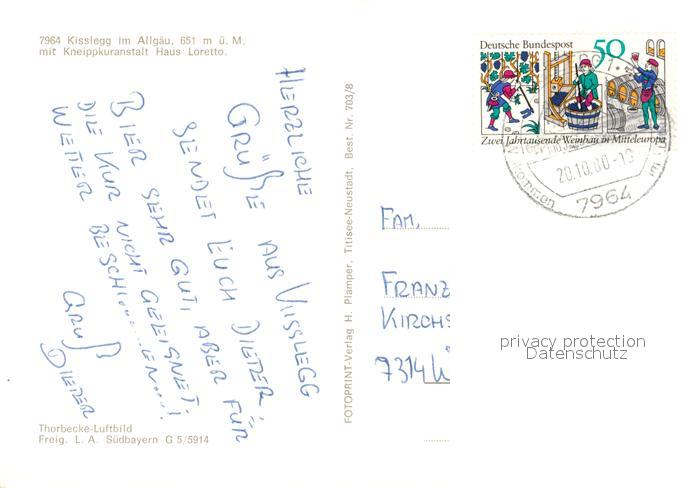 7964 Kisslegg im Allgäu, 651 m ü. M.
mit Kneippkuranstalt Haus Loretto.
HERZLICHE
GRÜßE AUS KISSLEGG
SENDET EUCH DIETER.
BIER SEHR GUT, ABER FÜR
DIE KUR NICHT GEEIGNET.
WETTER BESCHI......EN...!
GRUß
DIETER
Thorbecke-Luftbild
Freig. L. A. Südbayern G 5/5914
FOTOPRINT-Verlag H. Plamper, Titisee-Neustadt, Best. Nr. 703/8
Deutsche Bundespost 50
Zwei Jahrtausende Weinbau in Mitteleuropa
20.10.80-1
7964
FAM.
FRANZ
KIRCHS
7314
privacy protection
Datenschutz